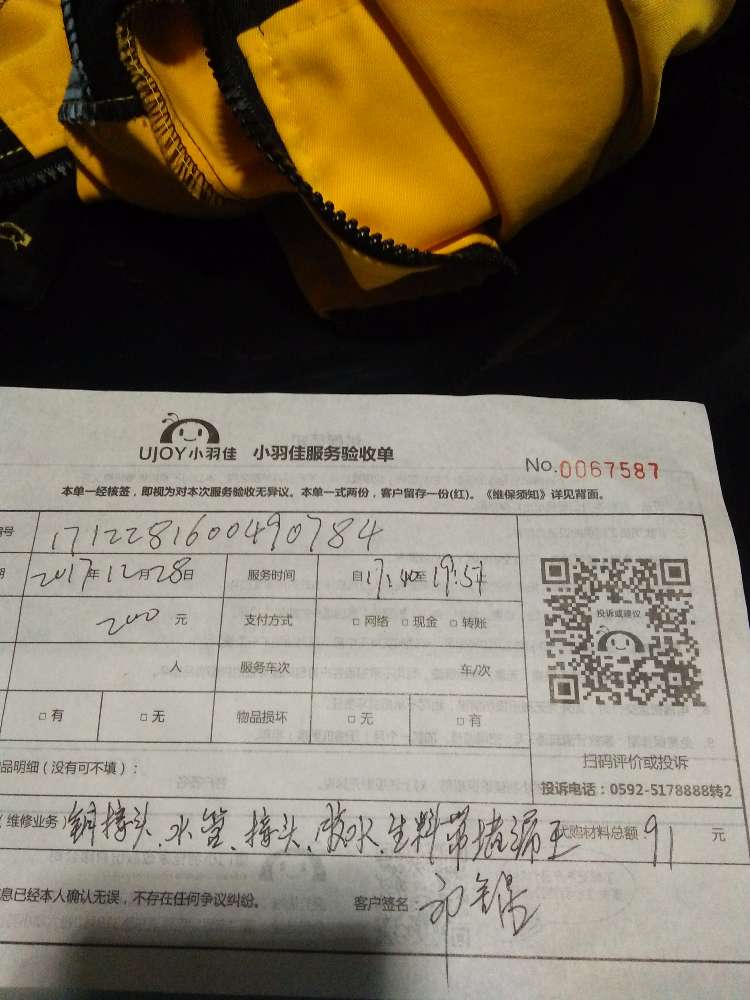 UJOY小羽佳 小羽佳服务验收单
No.0067587
本单一经核签，即视为对本次服务验收无异议。本单一式两份，客户留存一份(红)。《维保须知》详见背面。
编号 1712281600490784
期 2017年12月28日 服务时间 自17:40至19:57
200 元 支付方式 □ 网络 □ 现金 □ 转账
投诉或建议
人 服务车次 车/次
□ 有 □ 无 物品损坏 □ 无 □ 有
扫码评价或投诉
品明细（没有可不填）：
投诉电话：0592-5178888转2
（维修业务） 铜接头、水管、接头、胶水、生料带堵漏王 优购材料总额 91 元
息已经本人确认无误，不存在任何争议纠纷。 客户签名：